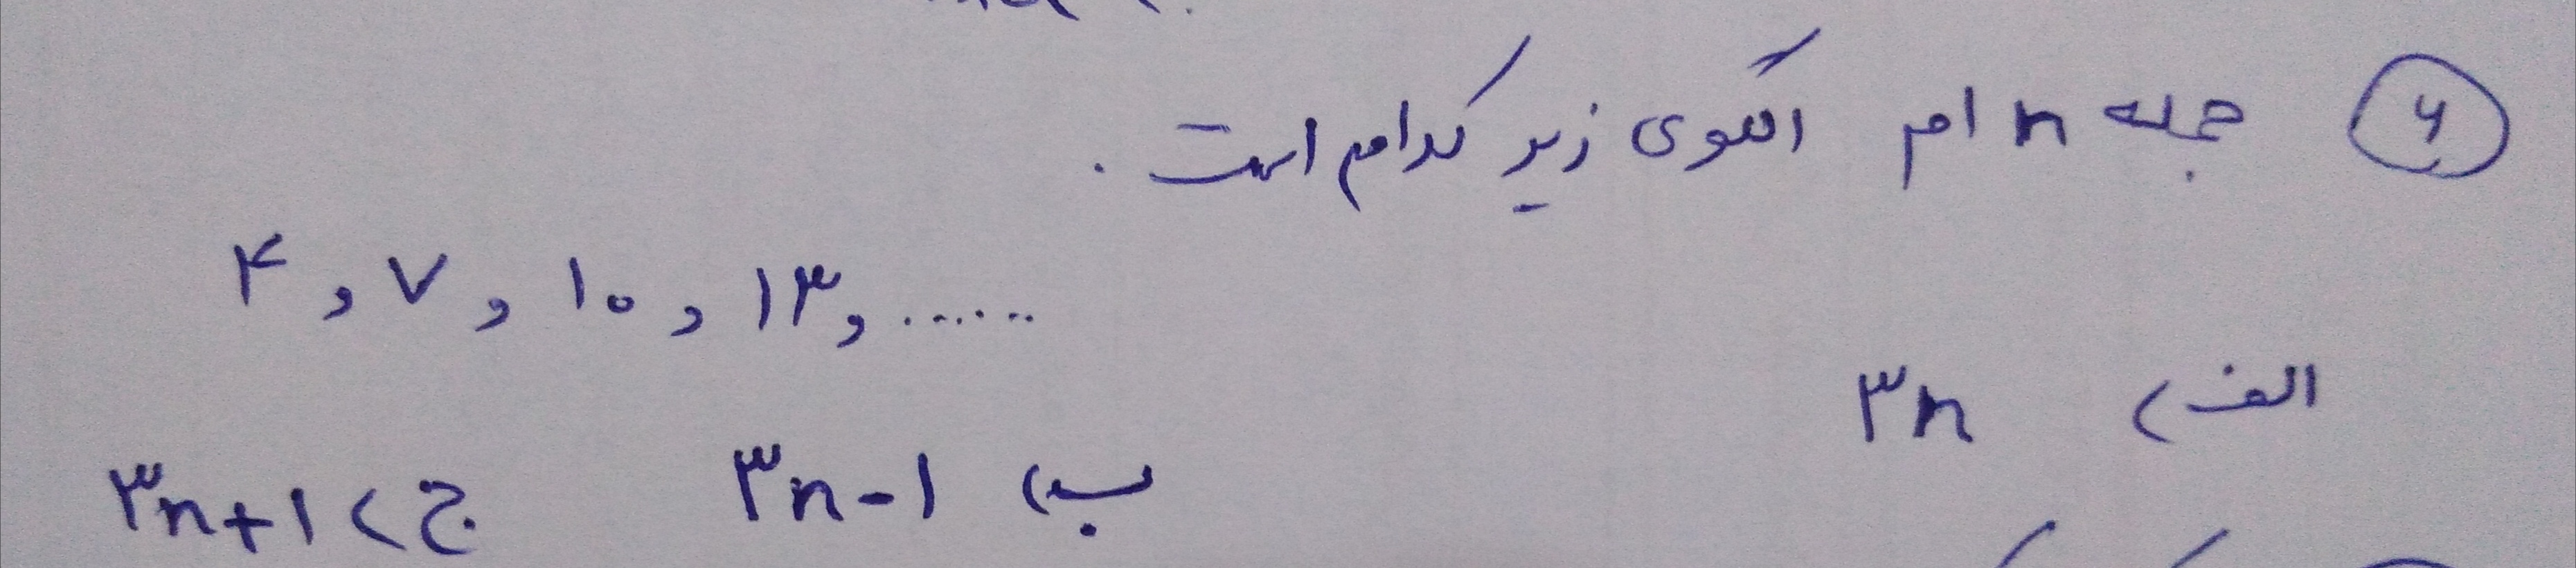 ۶ جمله n ام الگوی زیر کدام است .
۴ , ۷ , ۱۰ , ۱۳ , ......
الف) ۳n
ب) ۳n-۱
ج) ۳n+۱